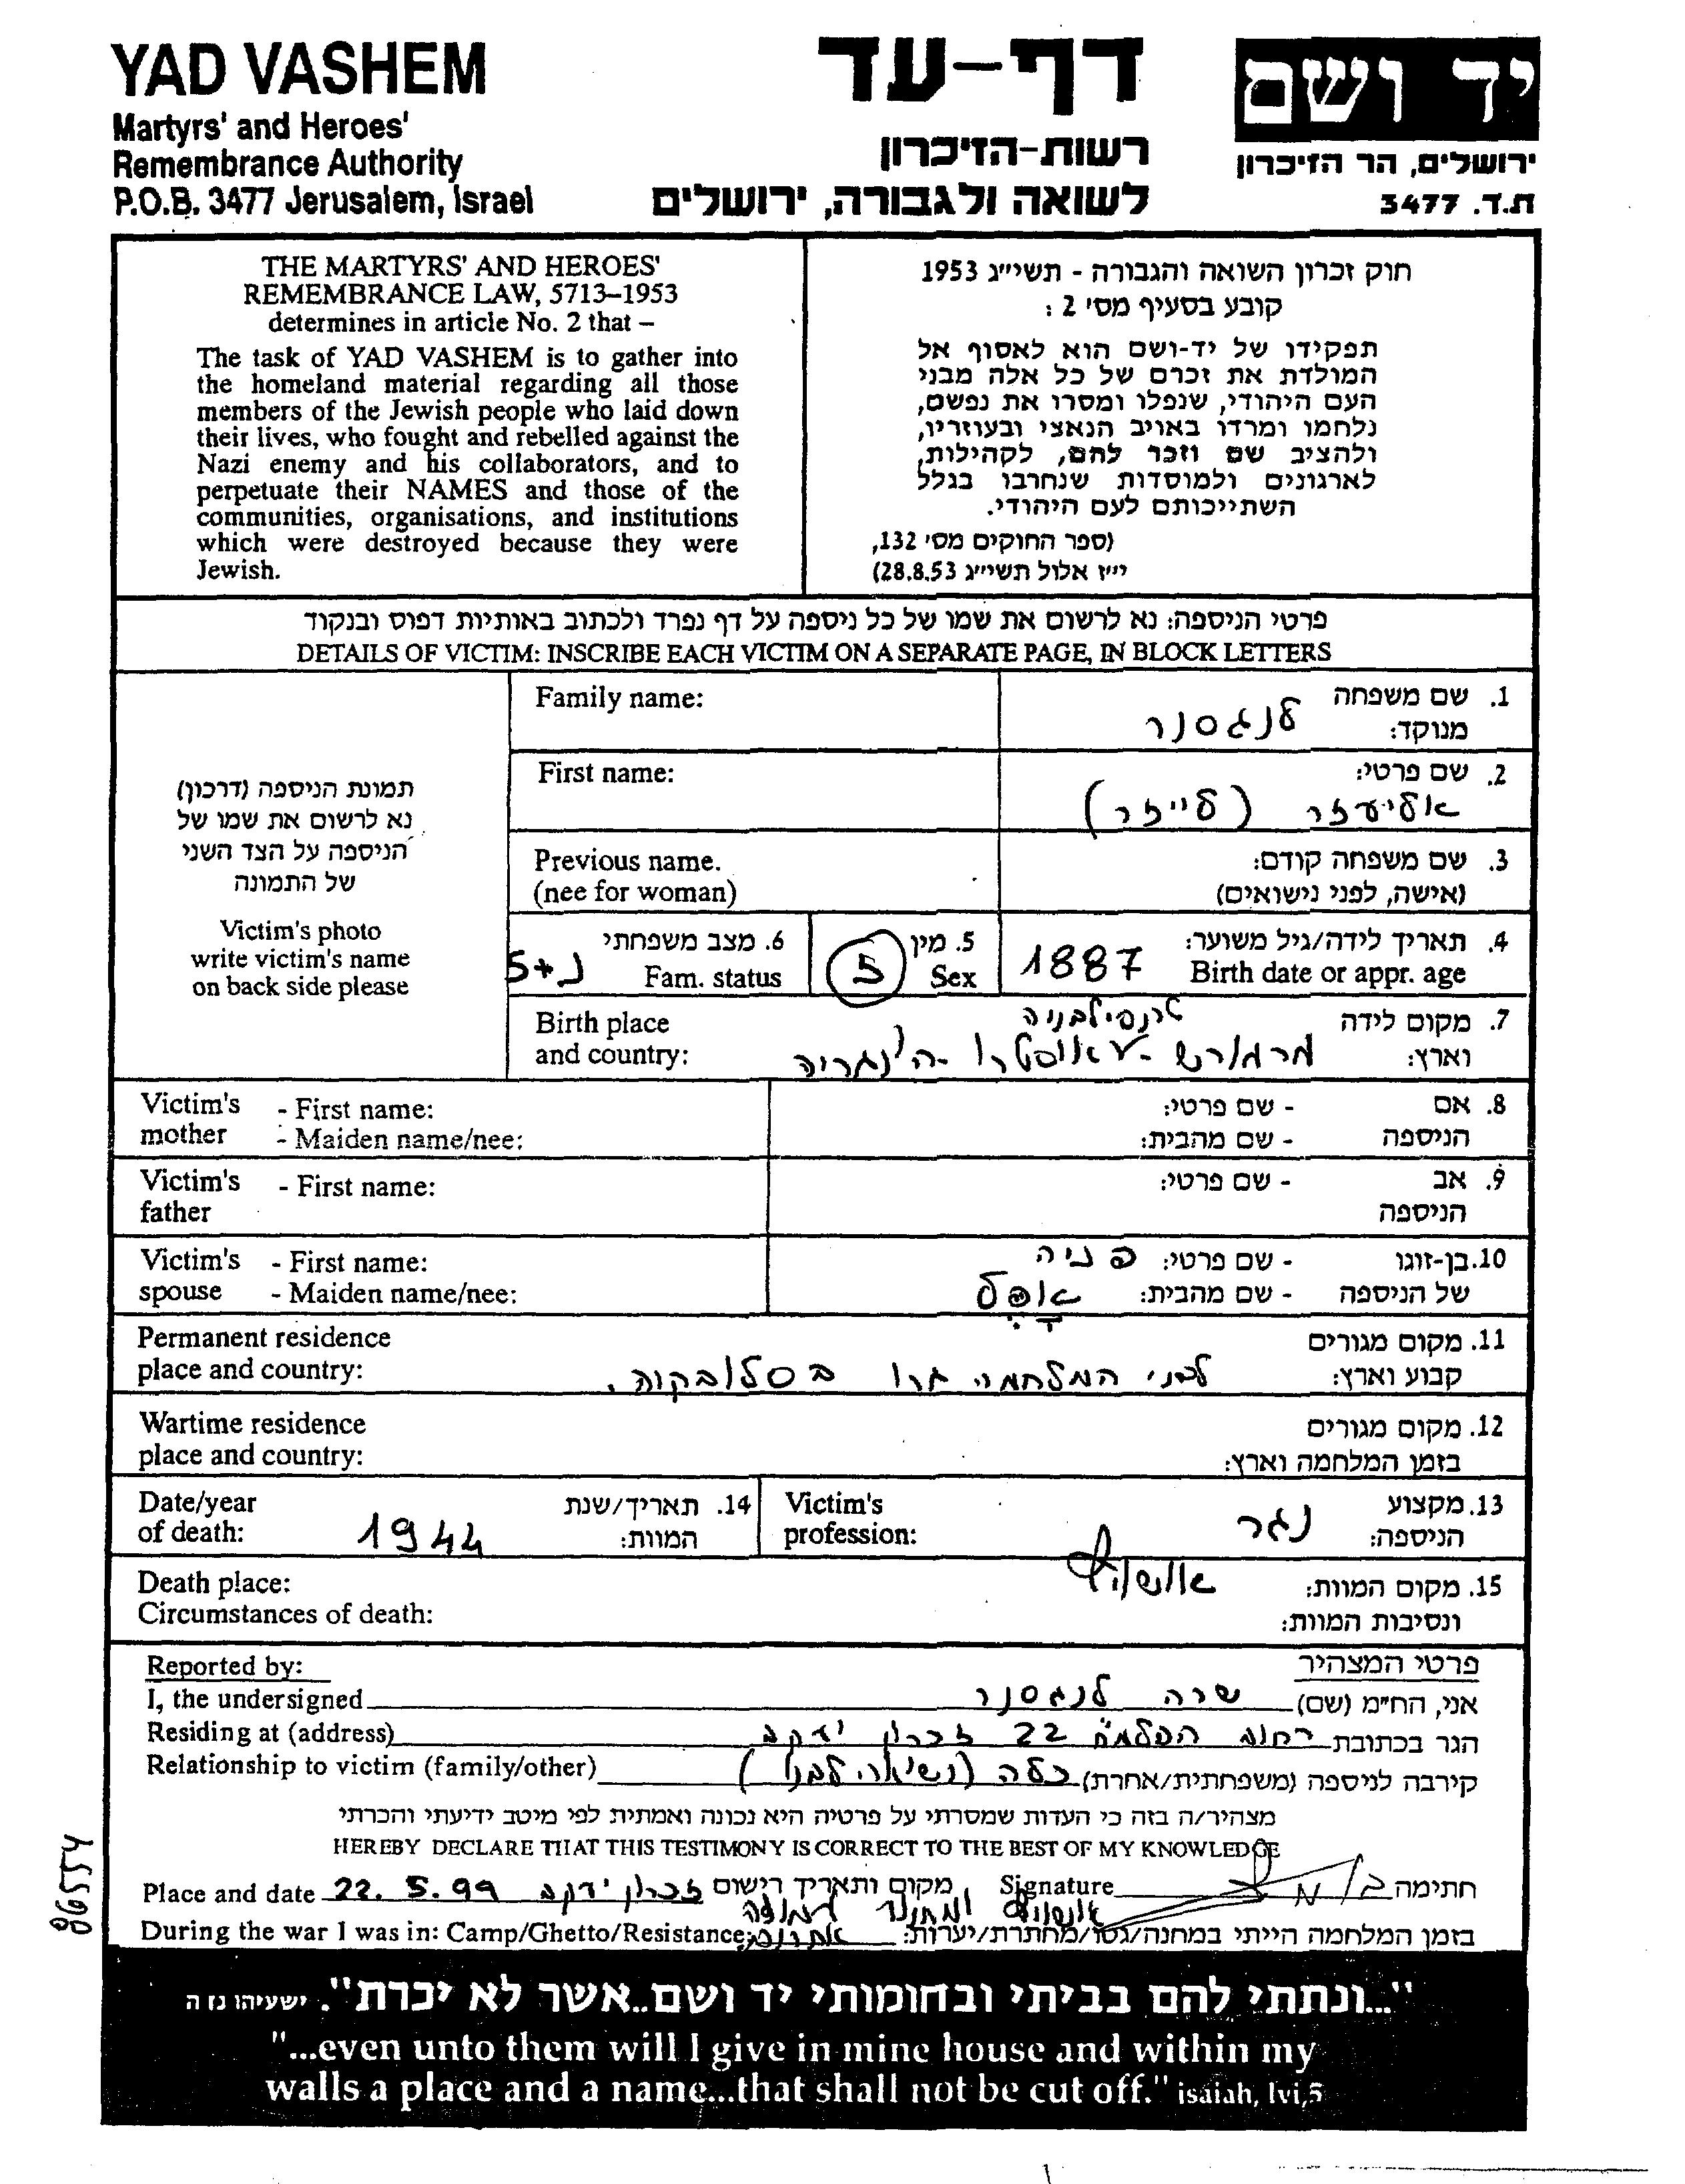 YAD VASHEM
Martyrs' and Heroes'
Remembrance Authority
P.O.B. 3477 Jerusalem, Israel
דף-עד
רשות-הזיכרון
לשואה ולגבורה, ירושלים
יד ושם
ירושלים, הר הזיכרון
ת.ד. 3477
THE MARTYRS' AND HEROES'
REMEMBRANCE LAW, 5713–1953
determines in article No. 2 that –
The task of YAD VASHEM is to gather into
the homeland material regarding all those
members of the Jewish people who laid down
their lives, who fought and rebelled against the
Nazi enemy and his collaborators, and to
perpetuate their NAMES and those of the
communities, organisations, and institutions
which were destroyed because they were
Jewish.
חוק זכרון השואה והגבורה - תשי״ג 1953
קובע בסעיף מס׳ 2 :
תפקידו של יד-ושם הוא לאסוף אל
המולדת את זכרם של כל אלה מבני
העם היהודי, שנפלו ומסרו את נפשם,
נלחמו ומרדו באויב הנאצי ובעוזריו,
ולהציב שם וזכר להם, לקהילות,
לארגונים ולמוסדות שנחרבו בגלל
השתייכותם לעם היהודי.
(ספר החוקים מס׳ 132,
י״ז אלול תשי״ג 28.8.53)
פרטי הניספה: נא לרשום את שמו של כל ניספה על דף נפרד ולכתוב באותיות דפוס ובנקוד
DETAILS OF VICTIM: INSCRIBE EACH VICTIM ON A SEPARATE PAGE, IN BLOCK LETTERS
תמונת הניספה (דרכון)
נא לרשום את שמו של
הניספה על הצד השני
של התמונה
Victim's photo
write victim's name
on back side please
Family name: לנגסנר 1. שם משפחה
מנוקד:
First name: 2. שם פרטי:
אליעזר (לייזר)
Previous name. 3. שם משפחה קודם:
(nee for woman) (אישה, לפני נישואים)
4. תאריך לידה/גיל משוער: 1887 5. מין ז 6. מצב משפחתי נ+5
Birth date or appr. age Sex Fam. status
Birth place 7. מקום לידה טרנסילבניה
and country: וארץ: מרמורש - אוסטרו - הונגריה
Victim's - First name: 8. אם - שם פרטי:
mother - Maiden name/nee: הניספה - שם מהבית:
Victim's - First name: 9. אב - שם פרטי:
father הניספה
Victim's - First name: 10. בן-זוגו - שם פרטי: פניה
spouse - Maiden name/nee: של הניספה - שם מהבית: אפל
Permanent residence 11. מקום מגורים
place and country: קבוע וארץ: לפני המלחמה גרו בסלובקיה.
Wartime residence 12. מקום מגורים
place and country: בזמן המלחמה וארץ:
Date/year 14. תאריך/שנת
of death: 1944 המוות:
Victim's 13. מקצוע
profession: נגר הניספה:
Death place: 15. מקום המוות: אושוויץ
Circumstances of death: ונסיבות המוות:
Reported by: פרטי המצהיר
I, the undersigned אני, הח״מ (שם) שרה לנגסנר
Residing at (address) הגר בכתובת רחוב הפלמ״ח 22 זכרון יעקב
Relationship to victim (family/other) קירבה לניספה (משפחתית/אחרת) כלה (נשואה לבנו)
מצהיר/ה בזה כי העדות שמסרתי על פרטיה היא נכונה ואמתית לפי מיטב ידיעתי והכרתי
HEREBY DECLARE THAT THIS TESTIMONY IS CORRECT TO THE BEST OF MY KNOWLEDGE
Place and date 22.5.99 זכרון יעקב מקום ותאריך רישום Signature חתימה
אושוויץ ומחנות
During the war I was in: Camp/Ghetto/Resistance בזמן המלחמה הייתי במחנה/גטו/מחתרת/יערות:
"...ונתתי להם בביתי ובחומותי יד ושם..אשר לא יכרת". ישעיהו נז ה
"...even unto them will I give in mine house and within my
walls a place and a name...that shall not be cut off." isaiah, lvi,5
86554